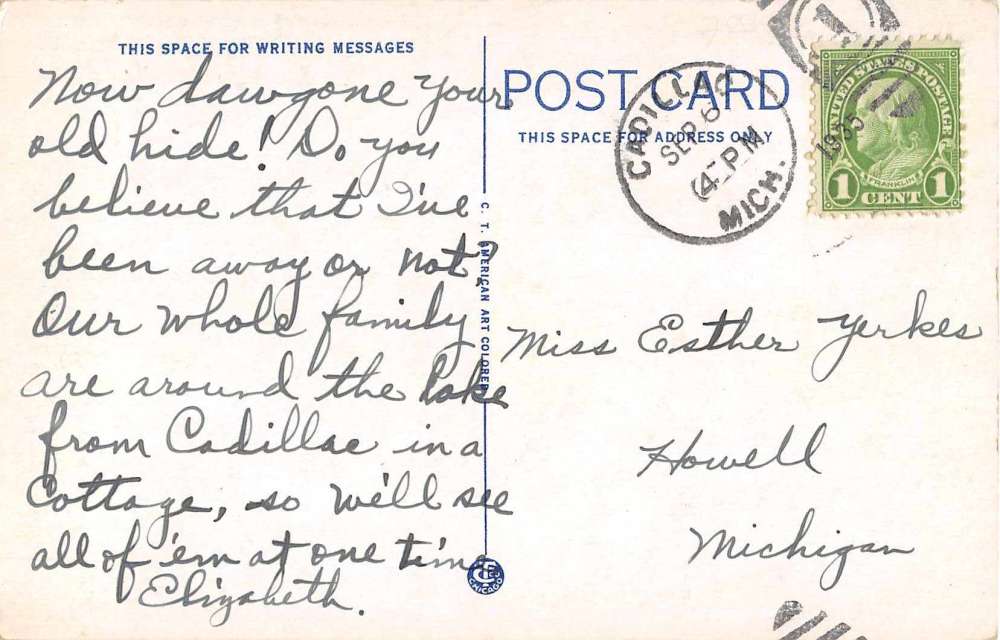 THIS SPACE FOR WRITING MESSAGES
Now dawgone your
old hide! Do you
believe that I've
been away or not?
Our whole family
are around the lake
from Cadillac in a
Cottage, so we'll see
all of 'em at one time
Elizabeth.
C. T. AMERICAN ART COLORED
CHICAGO
POST CARD
THIS SPACE FOR ADDRESS ONLY
CADILLAC
SEP 6
4-P.M
1935
MICH.
1
UNITED STATES POSTAGE
FRANKLIN
1 CENT 1
Miss Esther Yerkes
Howell
Michigan